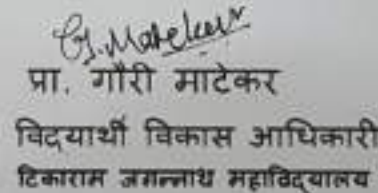 G. Matekar
प्रा. गौरी माटेकर
विदयार्थी विकास आधिकारी
टिकाराम जगन्नाथ महाविद्यालय